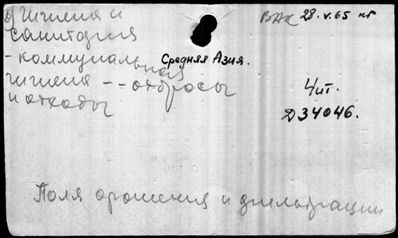 Гигиена и
санитария
- коммунальная
гигиена -- отбросы
и отходы
Средняя Азия.
ВАК 28.V.65 нг
Чит.
Д34046.
Поля орошения и фильтрации